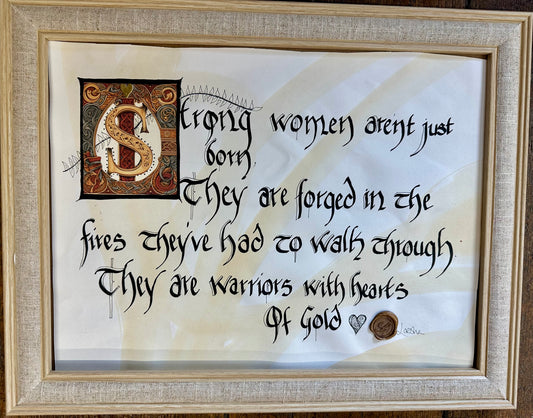 Strong women aren't just
born,
They are forged in the
fires they've had to walk through.
They are warriors with hearts
Of Gold